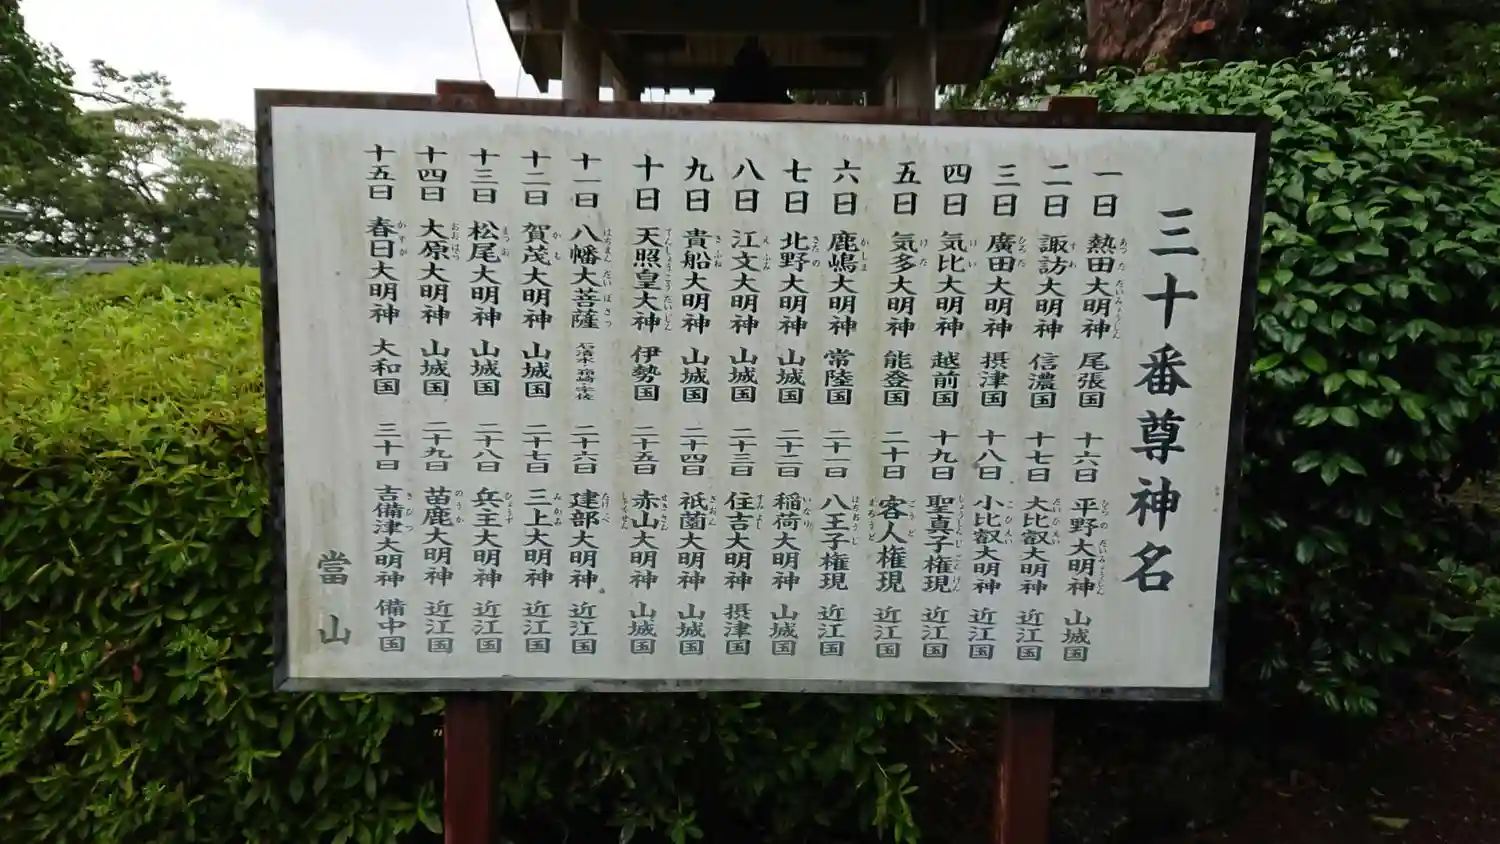 三十番尊神名
一日 熱田大明神 尾張国
二日 諏訪大明神 信濃国
三日 廣田大明神 摂津国
四日 気比大明神 越前国
五日 気多大明神 能登国
六日 鹿嶋大明神 常陸国
七日 北野大明神 山城国
八日 江文大明神 山城国
九日 貴船大明神 山城国
十日 天照皇大神 伊勢国
十一日 八幡大菩薩
十二日 賀茂大明神 山城国
十三日 松尾大明神 山城国
十四日 大原大明神 山城国
十五日 春日大明神 大和国
十六日 平野大明神 山城国
十七日 大比叡大明神 近江国
十八日 小比叡大明神 近江国
十九日 聖真子権現 近江国
二十日 客人権現 近江国
二十一日 八王子権現 近江国
二十二日 稲荷大明神 山城国
二十三日 住吉大明神 摂津国
二十四日 祇園大明神 山城国
二十五日 赤山大明神 山城国
二十六日 建部大明神 近江国
二十七日 三上大明神 近江国
二十八日 兵主大明神 近江国
二十九日 苗鹿大明神 近江国
三十日 吉備津大明神 備中国
當山